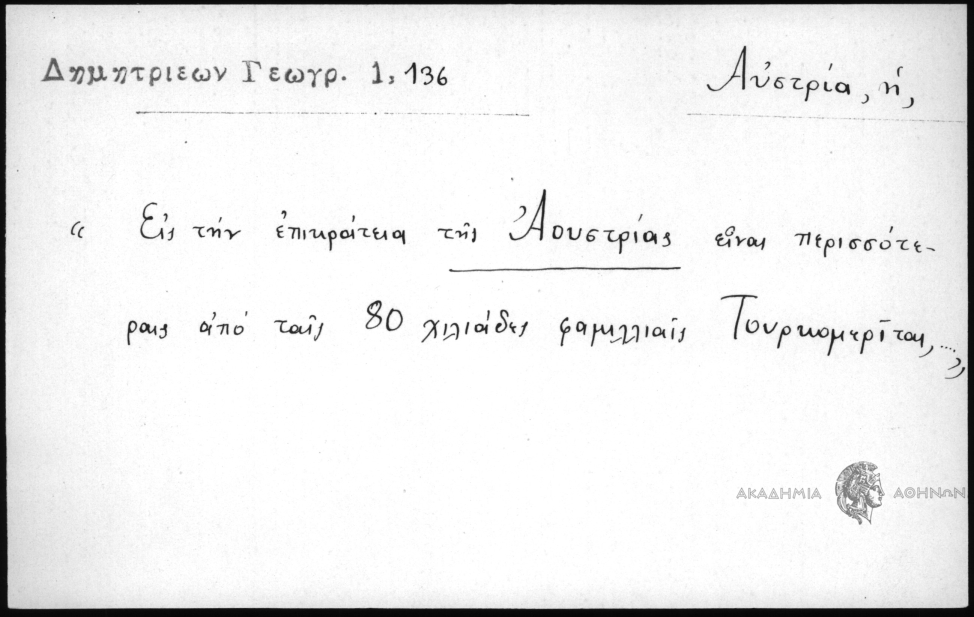 Δημητριεων Γεωγρ. 1, 136
Αὐστρία, ἡ,
« Εἰς τὴν ἐπικράτεια τῆς Ἀουστρίας εἶναι περισσότε-
ραις ἀπό ταῖς 80 χιλιάδες φαμιλλιαῖς Τουρκομερῖται, ....»
ΑΚΑΔΗΜΙΑ ΑΘΗΝΩΝ